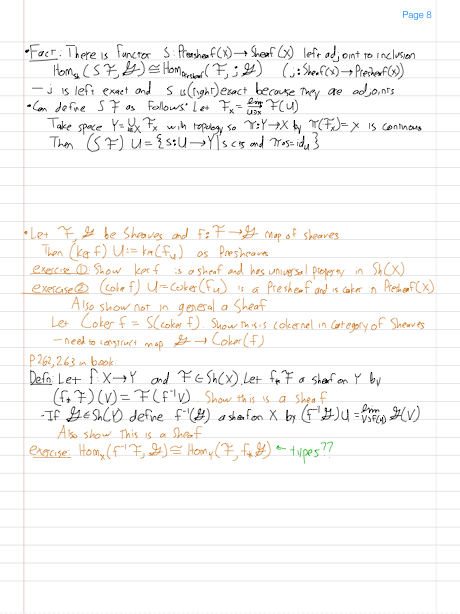 Page 8
• Fact: There is functor S: Presheaf(X) → Sheaf(X) left adjoint to inclusion
Hom_Sh(S F, G) ≅ Hom_Presheaf(F, j G) (j: Sheaf(X) → Presheaf(X))
– j is left exact and S is (right) exact because they are adjoints
• Can define S F as follows: Let F_x = lim_{U∋x} F(U)
Take space Y = ∪_{x∈X} F_x with topology so π: Y → X by π(F_x) = x is continous
Then (S F) U = {s: U → Y | s cts and π∘s = id_U}
• Let F, G be Sheaves and f: F → G map of sheaves
Then (ker f) U := ker(f_U) as Presheaves
exercise ① Show ker f is a sheaf and has universal property in Sh(X)
exercise ② (coker f) U = coker(f_U) is a Presheaf and is coker in Presheaf(X)
Also show not in general a Sheaf
Let Coker f = S(coker f). Show this is cokernel in category of Sheaves
– need to construct map G → Coker(f)
P 262, 263 in book
Defn: Let f: X → Y and F ∈ Sh(X). Let f_* F a sheaf on Y by
(f_* F)(V) = F(f⁻¹V) Show this is a sheaf
- If G ∈ Sh(Y) define f⁻¹(G) a sheaf on X by (f⁻¹G) U = lim_{V⊃f(U)} G(V)
Also show This is a Sheaf
exercise: Hom_X(f⁻¹F, G) ≅ Hom_Y(F, f_* G) ← types??